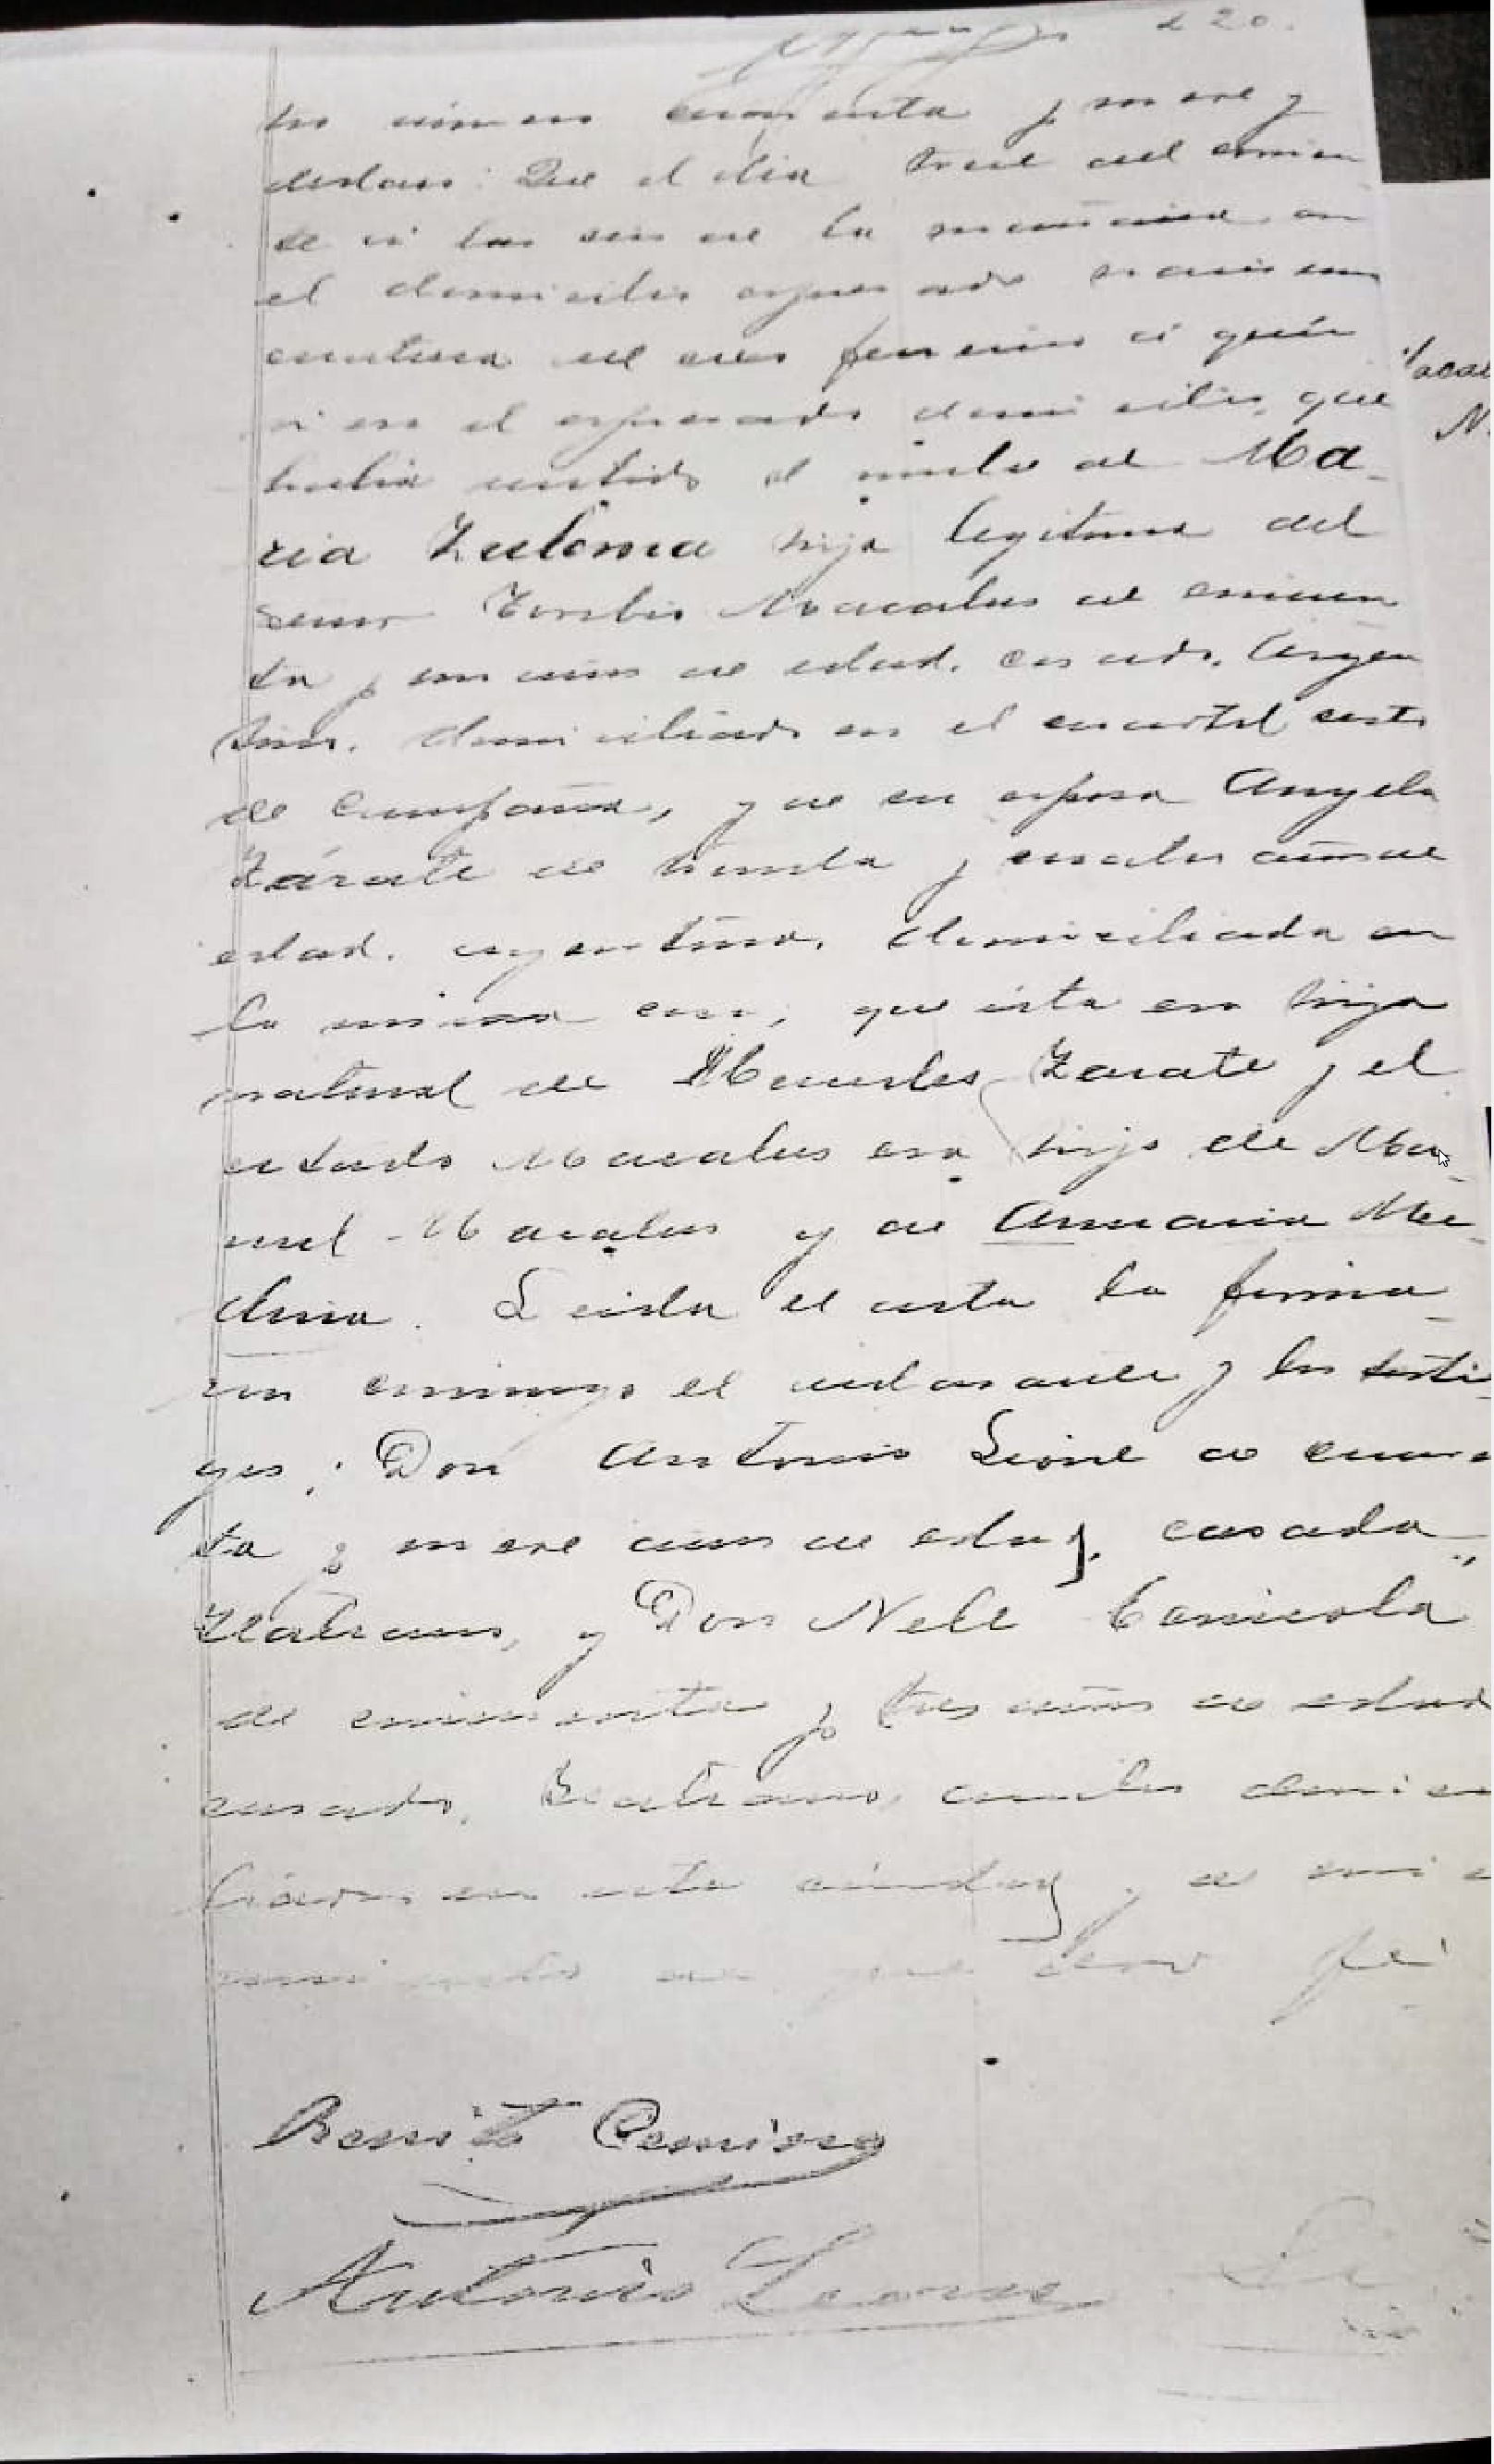 220.
número cuarenta y nueve y
declaró: Que el día trece del corrien
te á las seis de la mañana en
el domicilio expresado nació una
criatura de sexo femenino á quién
vi en el expresado domicilio, que
había recibido el nombre de Ma-
ria Zulema hija legitima del
Señor Toribio Macalus de cincuen
ta y un años de edad. casado. Argen
tino. domiciliado en el cuartel sexto
de Campaña, y de su esposa Angela
Zárate de treinta y cuatro años de
edad. argentina. domiciliada en
la misma casa; que ésta era hija
natural de Mercedes Zarate y el
citado Macalus era hijo de Ma-
nuel Macalus y de Anuaria Me-
dina. Leida el acta la firma-
ron conmigo el declarante y los testi
gos: Don Antonio Leone de cuaren
ta y nueve años de edad, casado,
Italiano, y Don Nele Canicola
de cincuenta y tres años de edad
casado, Italiano, ambos domici
liados en esta ciudad, de mi co
nocimiento de que doy fé
Benito
Antonio Leone
acal
N.